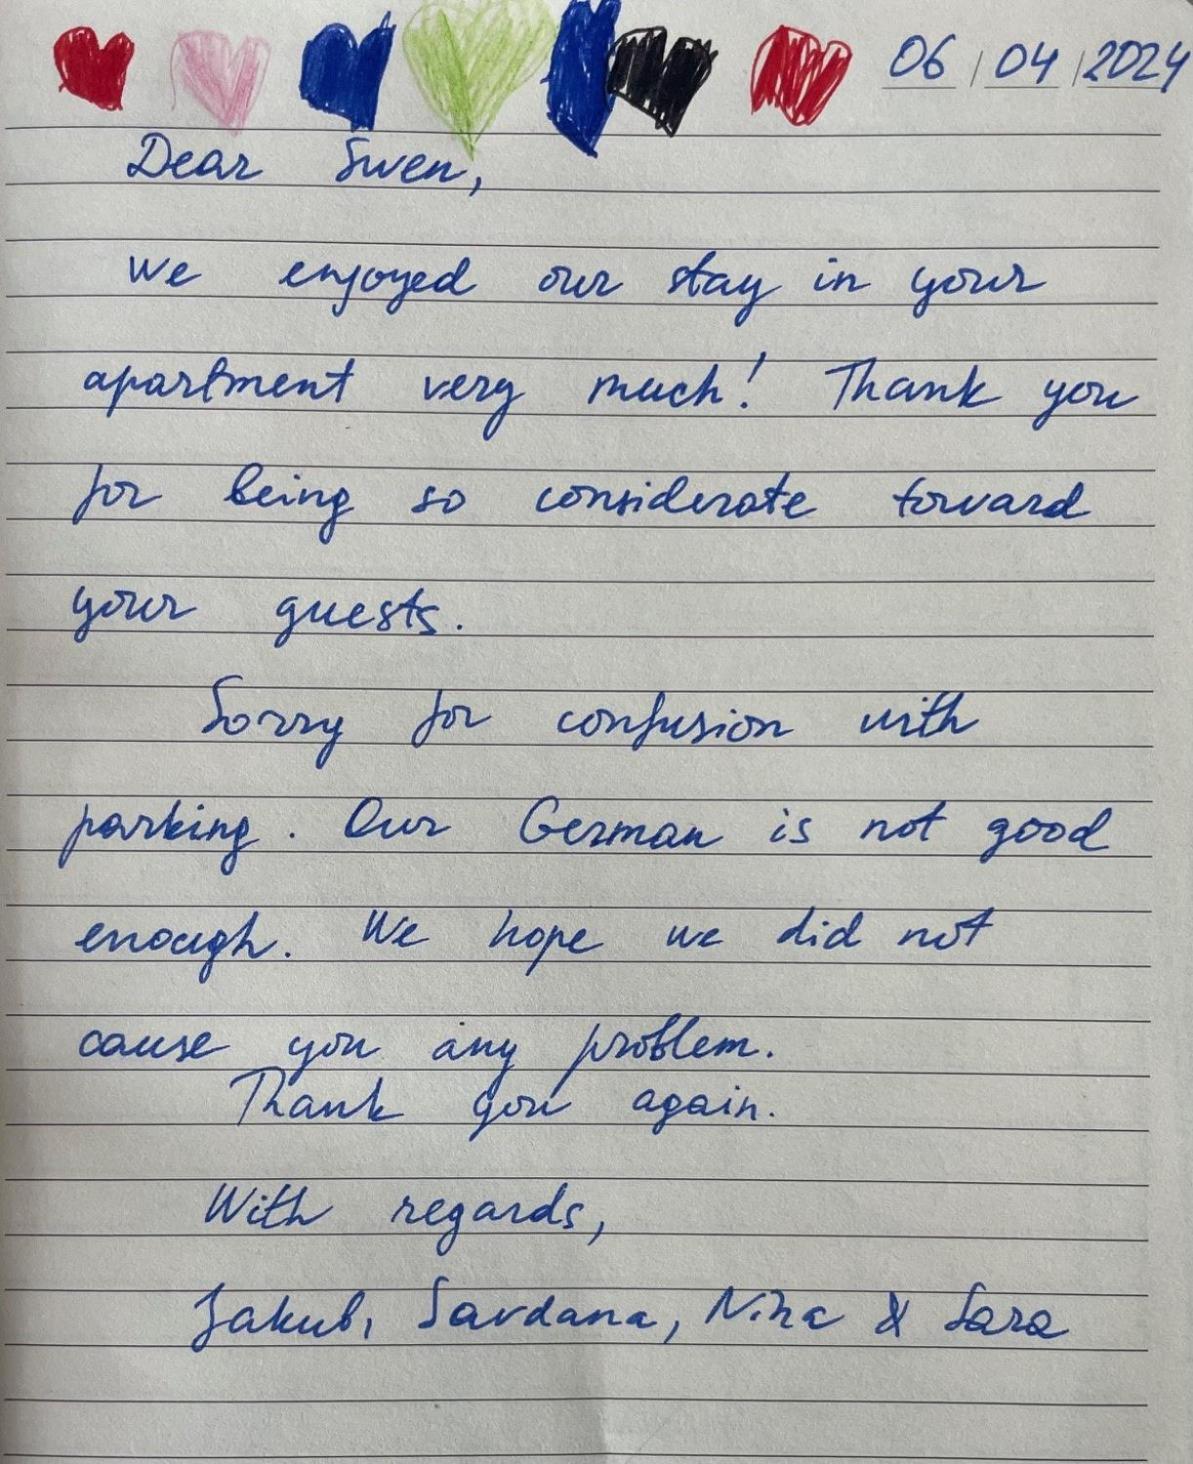 06/04/2024
Dear Swen,
We enjoyed our stay in your
apartment very much! Thank you
for being so considerate toward
your guests.
Sorry for confusion with
parking. Our German is not good
enough. We hope we did not
cause you any problem.
Thank you again.
With regards,
Jakub, Sardana, Nina & Sara